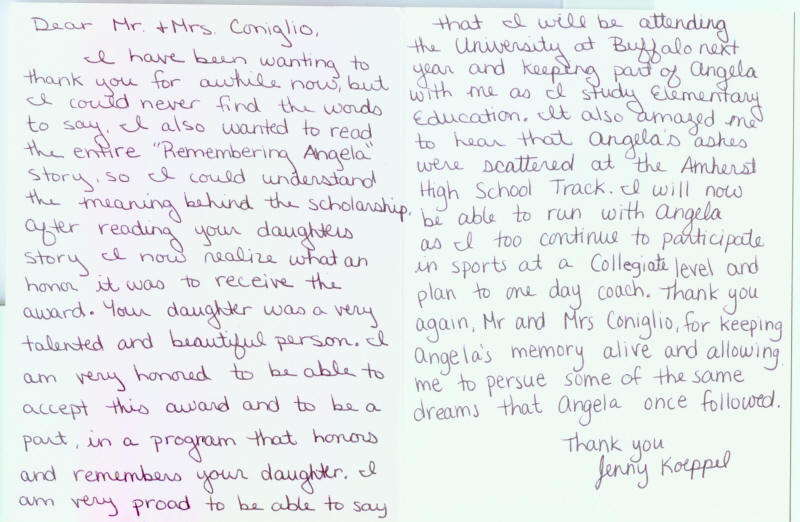 Dear Mr. + Mrs. Coniglio,
I have been wanting to
thank you for awhile now, but
I could never find the words
to say. I also wanted to read
the entire "Remembering Angela"
story, so I could understand
the meaning behind the scholarship.
After reading your daughters
story I now realize what an
honor it was to receive the
award. Your daughter was a very
talented and beautiful person. I
am very honored to be able to
accept this award and to be a
part, in a program that honors
and remembers your daughter. I
am very proad to be able to say
that I will be attending
the University at Buffalo next
year and keeping part of Angela
with me as I study Elementary
Education. It also amazed me
to hear that Angela's ashes
were scattered at the Amherst
High School Track. I will now
be able to run with Angela
as I too continue to participate
in sports at a Collegiate level and
plan to one day coach. Thank you
again, Mr and Mrs Coniglio, for keeping
Angela's memory alive and allowing
me to persue some of the same
dreams that Angela once followed.
Thank you
Jenny Koeppel